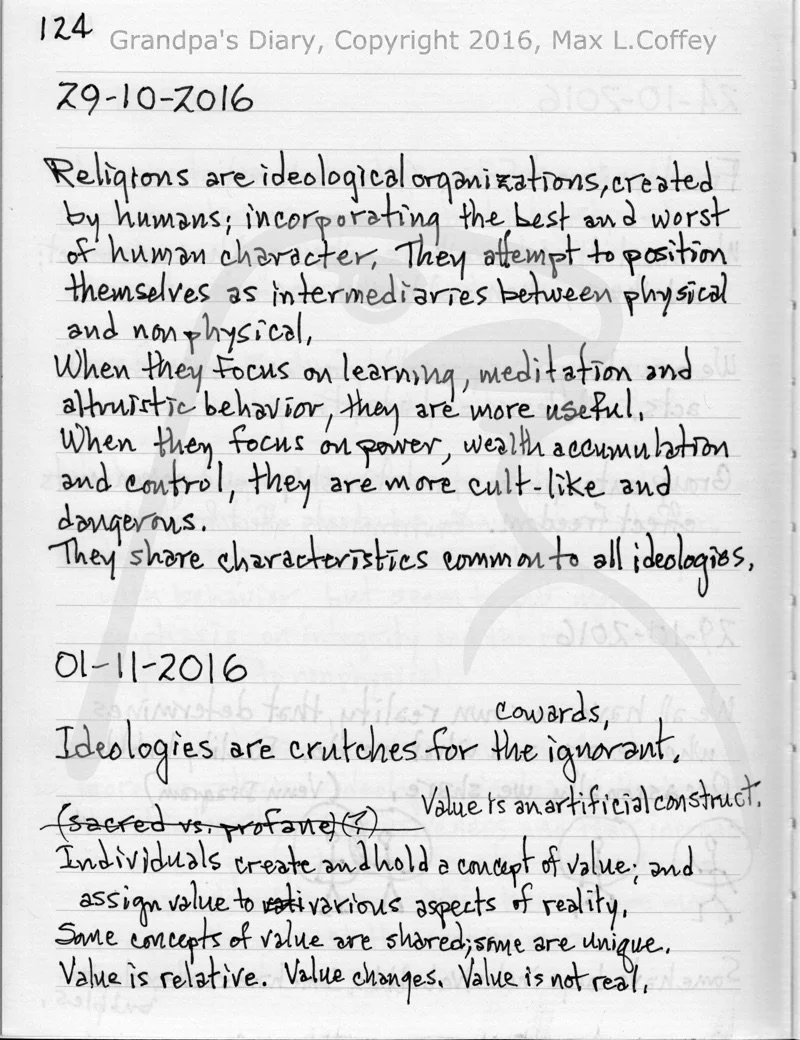 124
Grandpa's Diary, Copyright 2016, Max L.Coffey
29-10-2016
Religions are ideological organizations, created
by humans; incorporating the best and worst
of human character. They attempt to position
themselves as intermediaries between physical
and nonphysical.
When they focus on learning, meditation and
altruistic behavior, they are more useful.
When they focus on power, wealth accumulation
and control, they are more cult-like and
dangerous.
They share characteristics common to all ideologies.
01-11-2016
cowards,
Ideologies are crutches for the ignorant.
Value is an artificial construct.
(sacred vs. profane) (?)
Individuals create and hold a concept of value; and
assign value to various aspects of reality.
Some concepts of value are shared; some are unique.
Value is relative. Value changes. Value is not real.